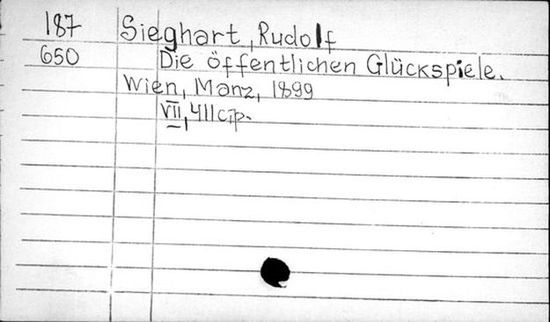 187 Sieghart, Rudolf
650 Die öffentlichen Glückspiele.
Wien, Manz, 1899
VII, 411 стр.